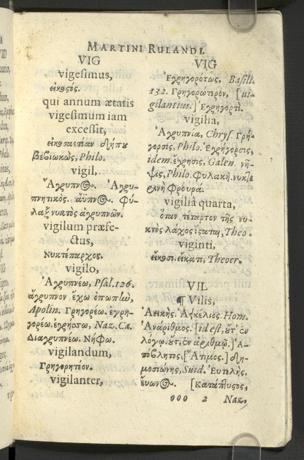 MARTINI RULANDI.
VIG
vigesimus,
εἰκοστός.
qui annum ætatis
vigesimum iam
excessit,
εἰκοσαετίαν
βεβιωκὼς, Philo.
vigil,
Ἄγρυπνος. Ἀγρυ-
πνητικός. ἄυπνος. Φύ-
λαξ νυκτὸς ἀγρυπνῶν.
vigilum præfe-
ctus,
Νυκτέπαρχος.
vigilo,
Ἀγρυπνέω, Psal. 126.
ἄγρυπνον ἔχω
Apolin. Γρηγορέω. ἐγρη-
γορέω. Naz. Ca.
Διαγρυπνέω. Νήφω.
vigilandum,
Γρηγορητέον.
vigilanter,
VIG
Ἐγρηγορότως, Basil.
132. Γρηγορώτερον, [vi-
gilantius.]
vigilia,
Ἀγρυπνία, Chrys. Γρή-
γορσις, Philo. Ἐγρήγορσις,
idem. ἔγρησις, Galen. νῆ-
ψις, Philo. Φυλακή.
Φρουρά.
vigilia quarta,
τέταρτον τῆς νυ-
κτὸς λάχος Theo.
viginti,
εἴκοσι. εἴκατι, Theocr.
VIL
¶ Vilis,
Hom.
Ἀνάριθμος. [id est,
λόγῳ, ἐν ἀριθμῷ.] Ἀ-
[Ἄτιμος.]
Suid. Εὐτελής.
εὔωνος. [Κατάπτυστος,
ooo 2 Naz.